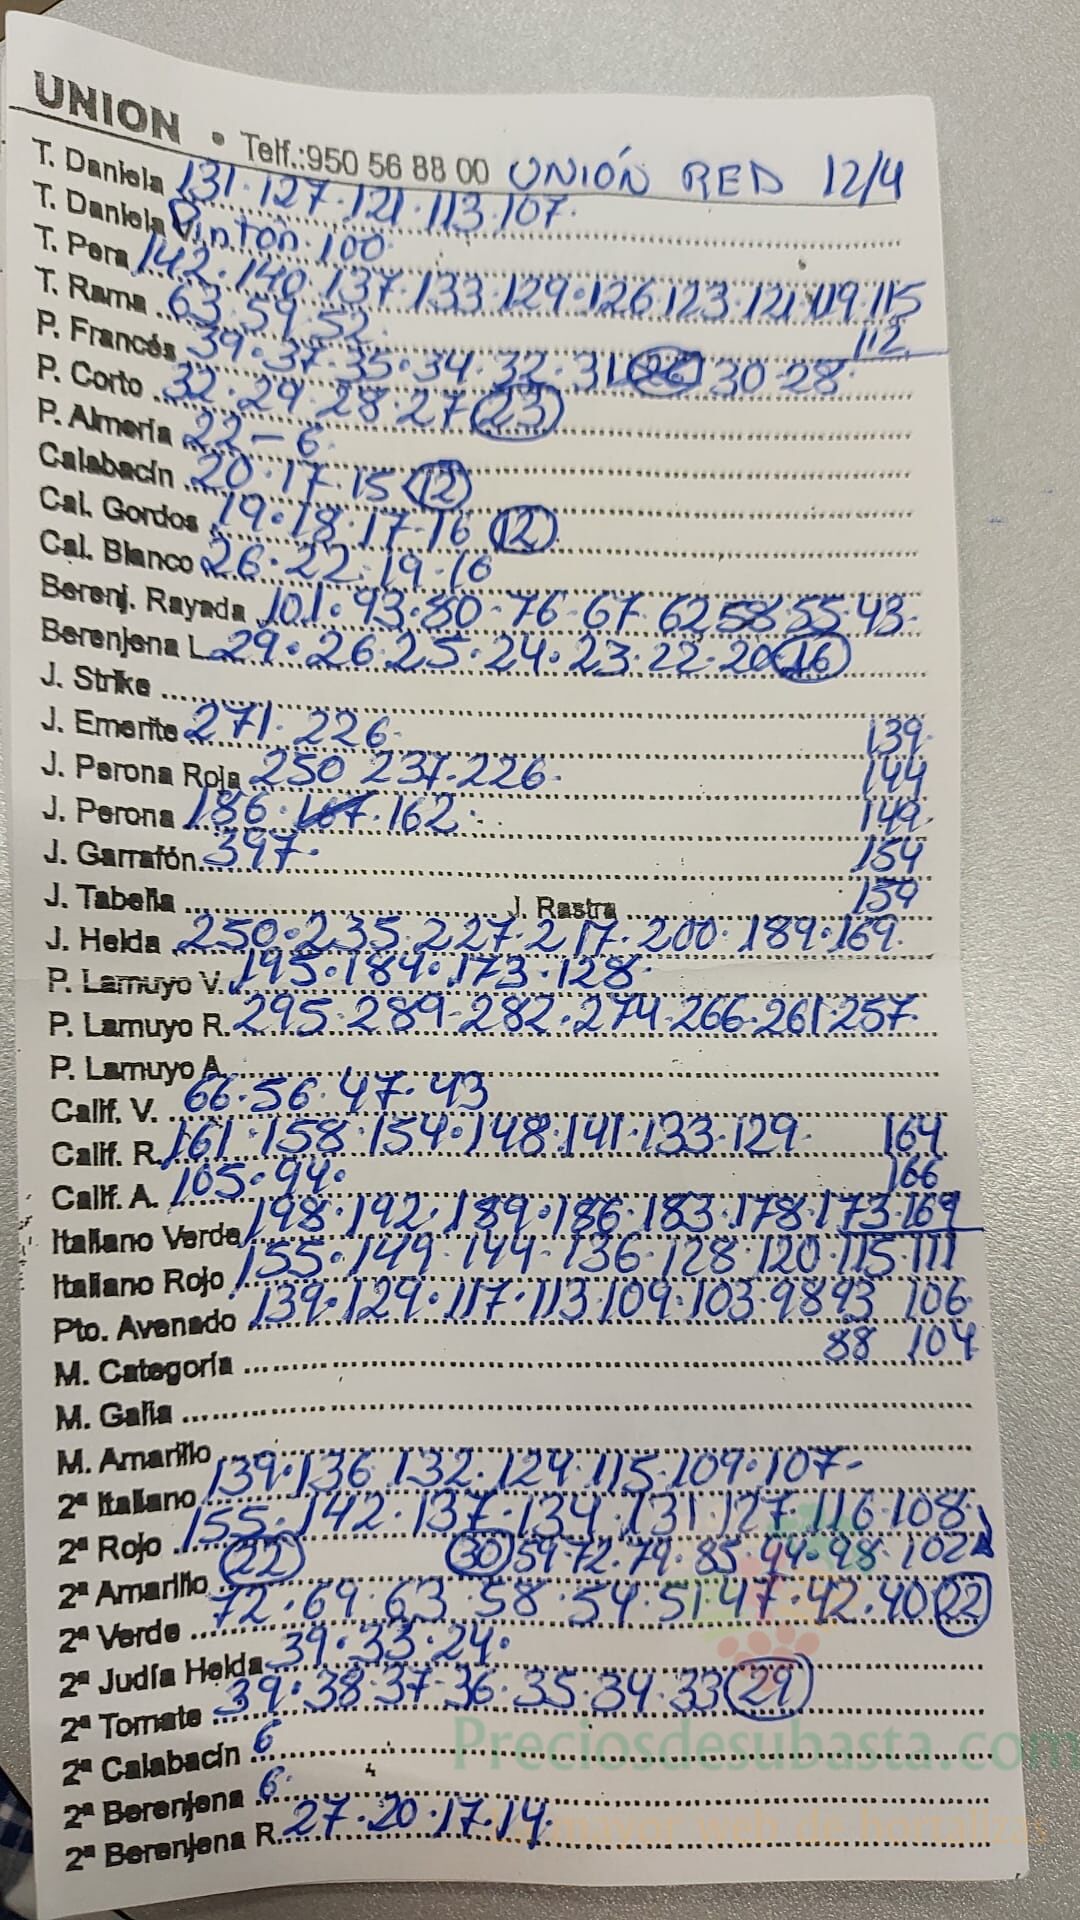 UNION • Telf.:950 56 88 00 UNIÓN RED 12/4
T. Daniela 131·127·121·113·107·
T. Daniela Pintón·100
T. Pera 142·140·137·133·129·126·123·121·119·115
112
T. Rama 63·59·52·
P. Francés 39·37·35·34·32·31 26 30·28·
P. Corto 32·29·28·27 23
P. Almería 22-6·
Calabacín 20·17·15 12
Cal. Gordos 19·18·17-16 12
Cal. Blanco 26·22·19·16
Berenj. Rayada 101·93·80-76-67·62 58·55·43·
Berenjena L. 29·26·25·24·23·22·20 16
J. Strike
J. Emerite 271·226· 139·
J. Perona Roja 250 237·226· 144
J. Perona 186·167·162· 149·
J. Garrafón 397· 154
J. Tabella J. Rastra 159
J. Helda 250·235·227·217·200·189·169·
P. Lamuyo V. 195·184·173·128·
P. Lamuyo R. 295·289-282·274·266·261·257·
P. Lamuyo A.
Calif. V. 66·56·47·43
Calif. R. 161·158·154·148·141·133·129· 164
Calif. A. 105·94· 166
Italiano Verde 198·192·189·186·183·178·173·169
Italiano Rojo 155·149·144·136·128·120·115·111
Pto. Avenado 139·129·117·113·109·103·98 93 106·
88 104
M. Categoría
M. Galia
M. Amarillo
2ª Italiano 139·136·132·124·115·109·107-
2ª Rojo 155·142·137·134·131·127·116·108·
22 30 59·72·79·85·94·98·102
2ª Amarillo
2ª Verde 72·69·63·58·54·51·47·42·40 22
2ª Judía Helda 39·33·24·
2ª Tomate 39·38·37-36·35·34·33 29
2ª Calabacín 6
2ª Berenjena 6·
2ª Berenjena R. 27·20·17·14
Preciosdesubasta.com
mayor web de hortalizas